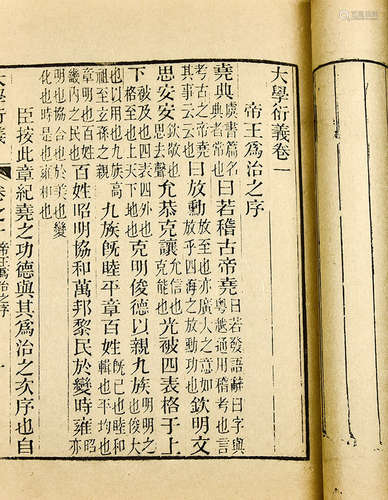 大學衍義卷一
帝王為治之序
堯典虞書篇名典者常也曰若稽古帝堯曰若發語辭曰字與粵越通用稽考也言
考古之帝堯其事云云也曰放勳放至也亦廣大之意如放乎四海之放勳功也欽明文
思安安欽敬也思去聲允恭克讓允信也克能也光被四表格于上
下被及也四表四外也格至也上天下地也克明俊德以親九族明明之也俊大
也以用也九族高祖至玄孫之親九族既睦平章百姓既已也睦和也平均也
章明也百姓畿內之民也百姓昭明協和萬邦黎民於變時雍昭亦
明也協合也於美也變化也時是也雍和也
臣按此章紀堯之功德與其為治之次序也自
大學衍義 卷之一 帝王為治之序